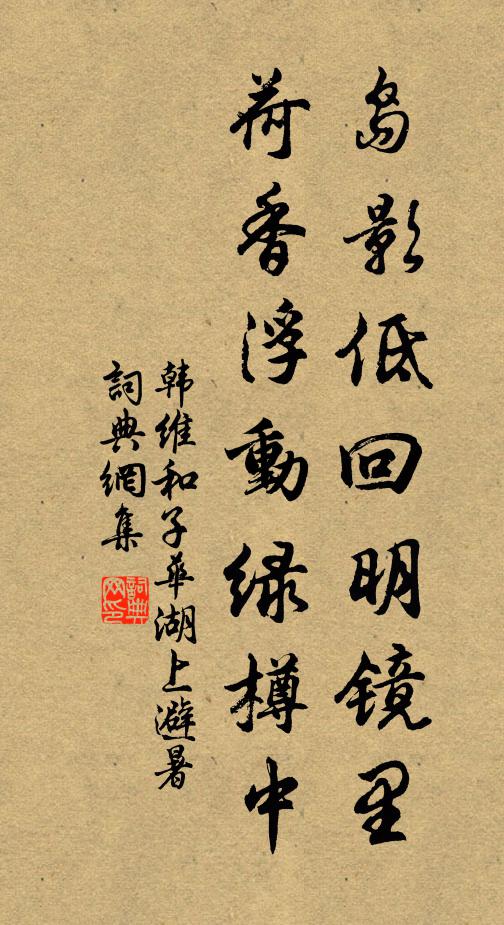 岛影低回明镜里
荷香浮動緑樽中
韩维和子華湖上避暑
詞典網集
詞典網印